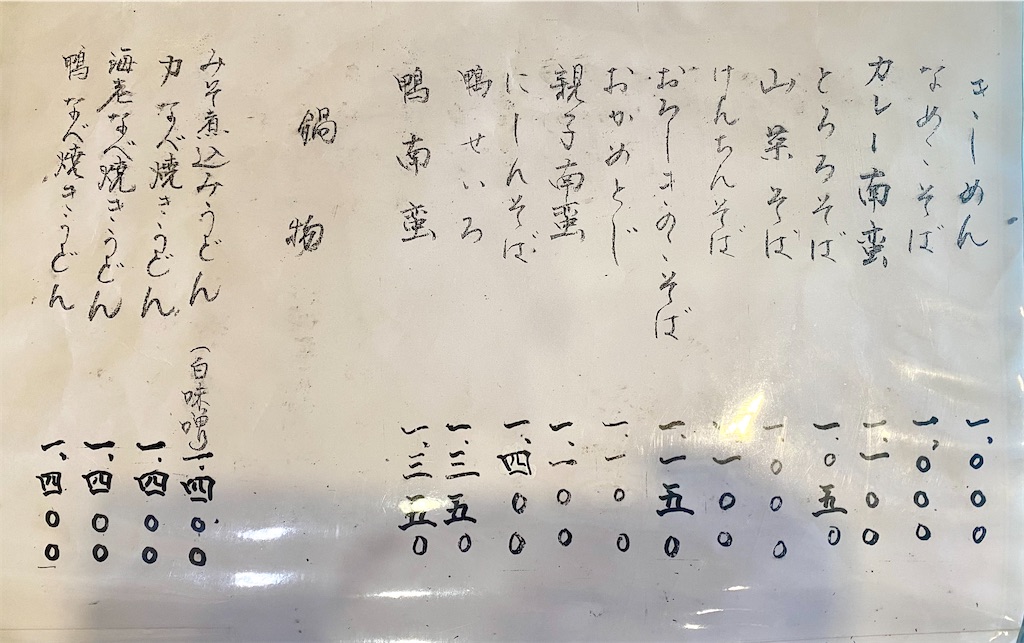 きしめん 一、〇〇〇
なめこそば 一、〇〇〇
カレー南蛮 一、一〇〇
とろろそば 一、〇五〇
山菜そば 一、〇〇〇
けんちんそば 一、一〇〇
おろしきのこそば 一、一五〇
おかめとじ 一、一〇〇
親子南蛮 一、一〇〇
にしんそば 一、四〇〇
鴨せいろ 一、三五〇
鴨南蛮 一、三五〇
鍋物
みそ煮込みうどん（白味噌）一、四〇〇
力なべ焼きうどん 一、四〇〇
海老なべ焼きうどん 一、四〇〇
鴨なべ焼きうどん 一、四〇〇